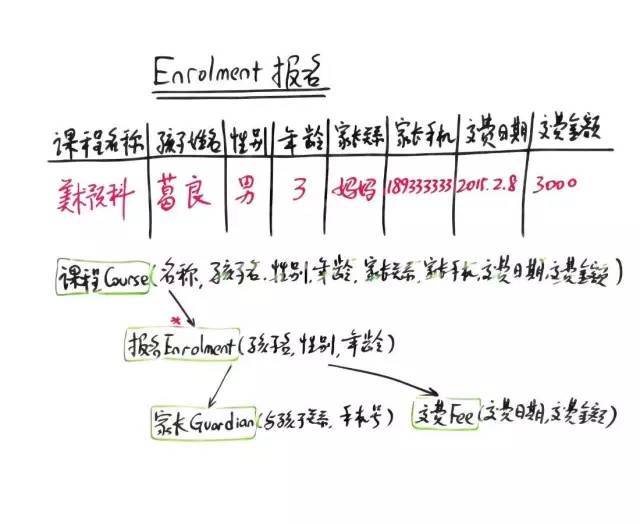 Enrolment 报名
课程名称 孩子姓名 性别 年龄 家长关系 家长手机 交费日期 交费金额
美术预科 葛良 男 3 妈妈 189333333 2015.2.8 3000
课程Course(名称,孩子名,性别,年龄,家长关系,家长手机,交费日期,交费金额)
*
报名Enrolment(孩子名,性别,年龄)
家长Guardian(与孩子关系,手机号) 交费Fee(交费日期,交费金额)